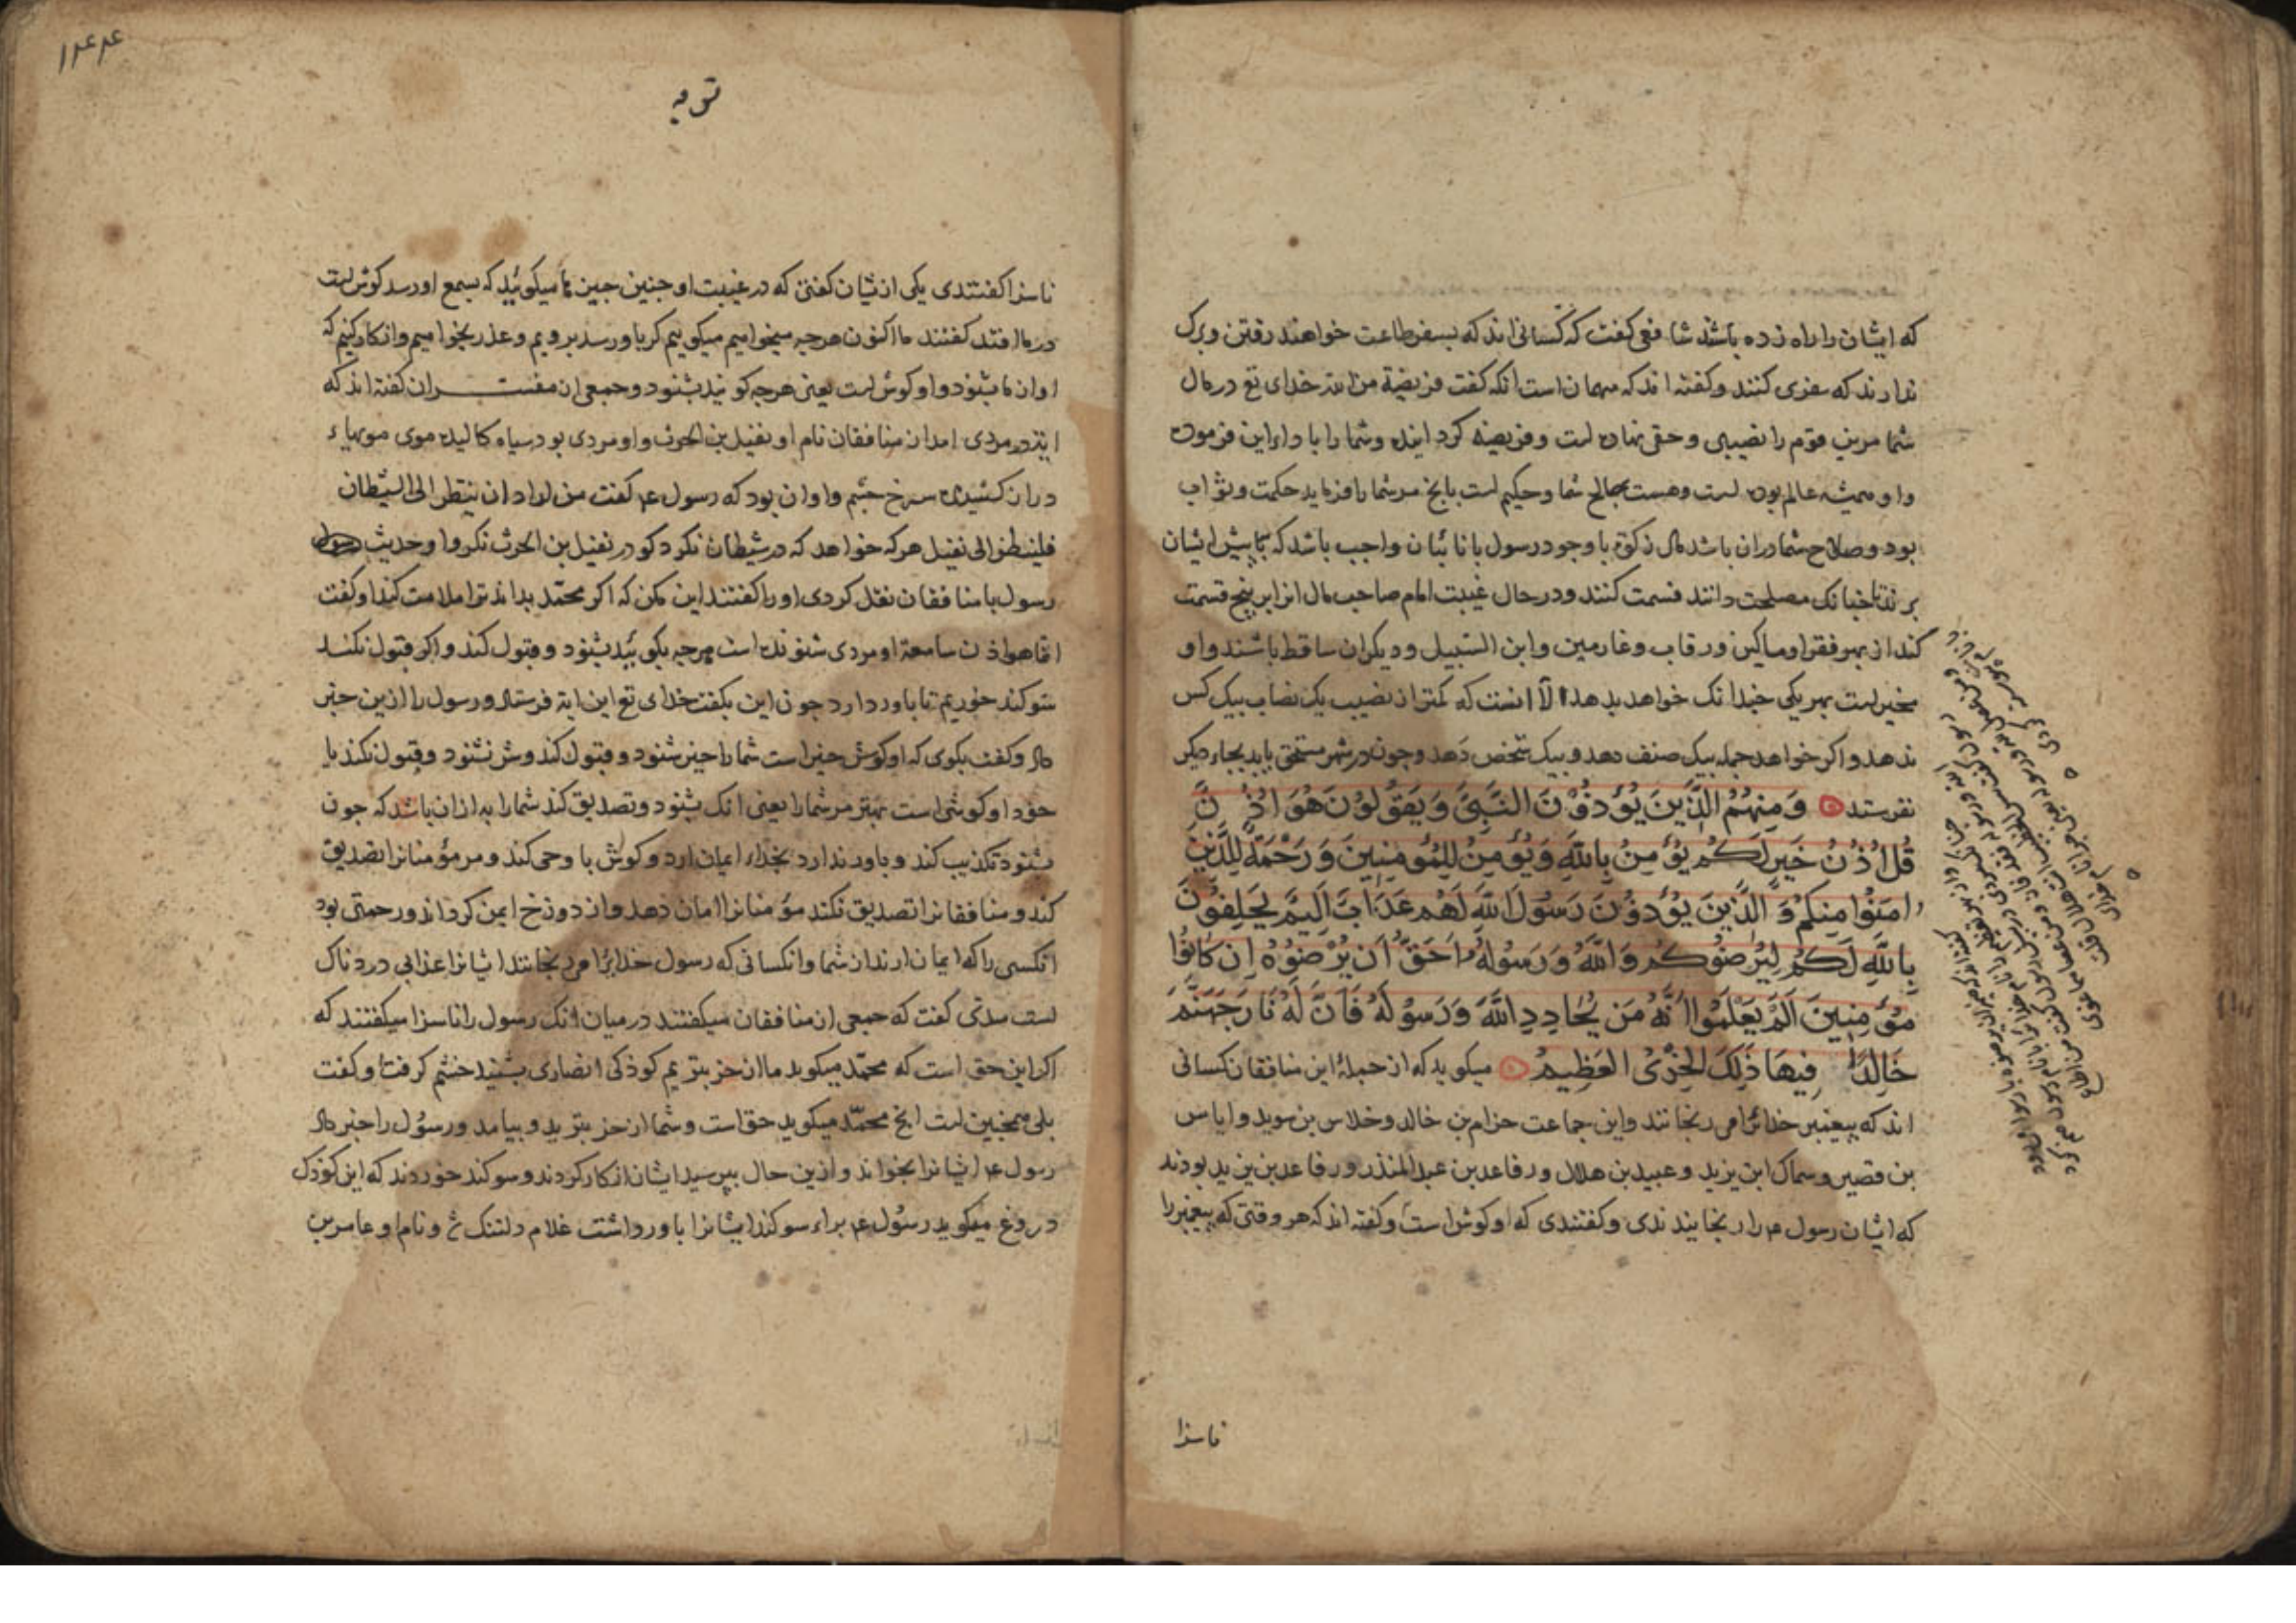 که ایشان را راه زده باشند شافعی کفت که کسانی اند که بسفر طاعت خواهند رفتن وبرک
ندارند که سفری کنند وکفته اند که مهمان است انکه کفت فریضة من الله خدای تع در مال
شما مرین قوم را نصیبی و حقی نهاده است وفریضه کرد اینده وشما را باداء این فرموده
واو همیشه عالم بوده است وهست بمصالح شما وحکیم است بانج مر شما را فرماید حکمت وثواب
بود وصلاح شما دران باشد مال زکوة با وجود رسول با نائبان واجب باشد که بپیش ایشان
برند تا چنانک مصلحت دانند قسمت کنند ودر حال غیبت امام صاحب مال انرا بر پنج قسمت
کند از بهر فقرا ومساکین ورقاب وغارمین وابن السبیل ودیکران ساقط باشند واو
مخیر است بهر یکی چندانک خواهد بدهد الا انست که کمتر از نصیب یک نصاب بیک کس
ندهد واکر خواهد جمله بیک صنف دهد وبیک شخص دهد وجون در شهر مستحق یابد بجاء دیکر
نفرستد وَمِنْهُمُ الَّذِينَ يُؤْذُونَ النَّبِيَّ وَيَقُولُونَ هُوَ اُذُنٌ
قُلْ اُذُنُ خَيْرٍ لَكُمْ يُؤْمِنُ بِاللَّهِ وَيُؤْمِنُ لِلْمُؤْمِنِينَ وَرَحْمَةٌ لِلَّذِينَ
امَنُوا مِنْكُمْ وَالَّذِينَ يُؤْذُونَ رَسُولَ اللَّهِ لَهُمْ عَذَابٌ اَلِيمٌ يَحْلِفُونَ
بِاللَّهِ لَكُمْ لِيُرْضُوكُمْ وَاللَّهُ وَرَسُولُهُ اَحَقُّ اَنْ يُرْضُوهُ اِنْ كَانُوا
مُؤْمِنِينَ اَلَمْ يَعْلَمُوا اَنَّهُ مَنْ يُحَادِدِ اللَّهَ وَرَسُولَهُ فَاَنَّ لَهُ نَارَ جَهَنَّمَ
خَالِدًا فِيهَا ذَلِكَ الْخِزْىُ الْعَظِيمُ میکوید که از جملهٔ این منافقان کسانی
اند که پیغنبر خدائرا می رنجانند واین جماعت حزام بن خالد وخلاس بن سوید وایاس
بن قصیر وسماک ابن یزید وعبید بن هلال ورفاعه بن عبد المنذر ورفاعه بن یزید بودند
که ایشان رسول ع را رنجانیدندی وکفتندی که او کوش است وکفته اند که هر وقتی که پیغنبر را
ناسزا
توبه
ناسزا کفتندی یکی از یشان کفتی که در غیبت او جنین جیزها میکوئید که بسمع او رسد کوش است
در ما افتد کفتند ما اکنون هرجه میخواهیم میکوییم کر باو رسد برویم وعذر بخواهیم وانکار کنیم که
او از ما بشنود واو کوش است یعنی هرجه کویند بشنود وجمعی از مفسران کفته اند که
این در مردی امد از منافقان نام او نفیل بن الحرث واو مردی بود سیاه کالیده موی موبهاء
دران کشیده سرخ جشم واو ان بود که رسول ع کفت من اراد ان ینظر الی الشیطان
فلینظر الی نفیل هرکه خواهد که در شیطان نکرد کو در نفیل بن الحرث نکر واو حدیث
رسول با منافقان نقل کردی او را کفتند این مکن که اکر محمد بداند ترا ملامت کند او کفت
انما هو اذن سامعة او مردی شنونده است هرجه بکوئید بشنود وقبول کند واکر قبول نکند
سوکند خوریم تا باور دارد جون این بکفت خدای تع این ایة فرستاد ورسول را ازین خبر
داد وکفت بکوی که او کوش خیر است شما را خیر شنود وقبول کند وشر نشنود وقبول نکند یا
خود او کوشی است بهتر مر شما را یعنی انک بشنود وتصدیق کند شما را به ازان باشد که جون
بشنود تکذیب کند وباور ندارد بخداء ایمان ارد وکوش با وحی کند ومر مؤمنانرا تصدیق
کند ومنافقانرا تصدیق نکند مؤمنانرا امان دهد واز دوزخ ایمن کرداند ورحمتی بود
انکسی را که ایمان ارند از شما وانکسانی که رسول خدایرا می رنجانند ایشانرا عذابی دردناک
است سدی کفت که جمعی از منافقان میکفتند درمیان انک رسول را ناسزا میکفتند که
اکر این حق است که محمد میکوید ما از خر بتریم کوذکی انصاری بشنید خشم کرفت وکفت
بلی همجنین است انج محمد میکوید حق است وشما از خر بترید وبیامد ورسول را خبر داد
رسول ع ایشانرا بخواند وازین حال بپرسید ایشان انکار کردند وسوکند خوردند که این کوذک
دروغ میکوید رسول ع براء سوکند ایشانرا باور داشت غلام دلتنک شد ونام او عامر بن